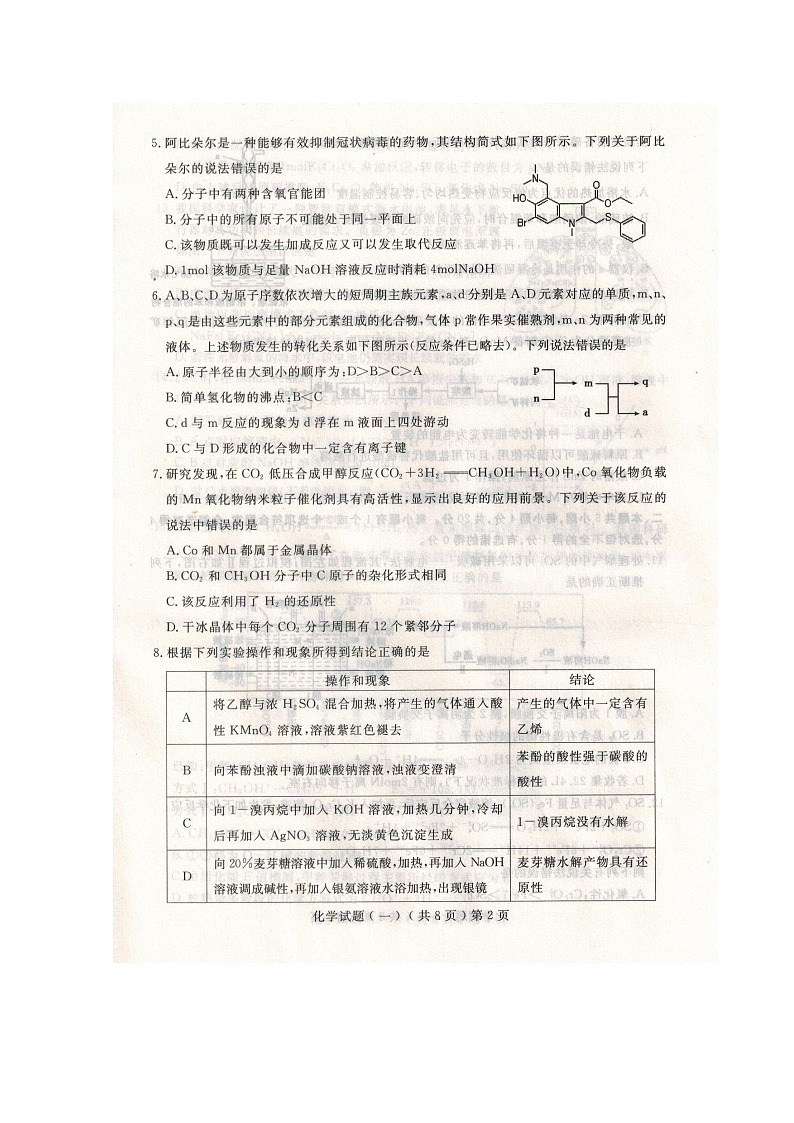 5.阿比朵尔是一种能够有效抑制冠状病毒的药物,其结构简式如下图所示。下列关于阿比
朵尔的说法错误的是
A.分子中有两种含氧官能团
B.分子中的所有原子不可能处于同一平面上
C.该物质既可以发生加成反应又可以发生取代反应
D.1mol该物质与足量NaOH溶液反应时消耗4molNaOH
N
HO
Br
N
O
O
S
6.A、B、C、D为原子序数依次增大的短周期主族元素,a、d分别是A、D元素对应的单质,m、n、
p、q是由这些元素中的部分元素组成的化合物,气体p常作果实催熟剂,m、n为两种常见的
液体。上述物质发生的转化关系如下图所示(反应条件已略去)。下列说法错误的是
A.原子半径由大到小的顺序为:D>B>C>A
B.简单氢化物的沸点:B<C
C.d与m反应的现象为d浮在m液面上四处游动
D.C与D形成的化合物中一定含有离子键
p
n
m
d
q
a
7.研究发现,在CO₂低压合成甲醇反应(CO₂+3H₂══CH₃OH+H₂O)中,Co氧化物负载
的Mn氧化物纳米粒子催化剂具有高活性,显示出良好的应用前景。下列关于该反应的
说法中错误的是
A.Co和Mn都属于金属晶体
B.CO₂和CH₃OH分子中C原子的杂化形式相同
C.该反应利用了H₂的还原性
D.干冰晶体中每个CO₂分子周围有12个紧邻分子
8.根据下列实验操作和现象所得到结论正确的是
操作和现象 结论
A 将乙醇与浓H₂SO₄混合加热,将产生的气体通入酸 产生的气体中一定含有
性KMnO₄溶液,溶液紫红色褪去 乙烯
B 向苯酚浊液中滴加碳酸钠溶液,浊液变澄清 苯酚的酸性强于碳酸的
酸性
C 向1-溴丙烷中加入KOH溶液,加热几分钟,冷却 1-溴丙烷没有水解
后再加入AgNO₃溶液,无淡黄色沉淀生成
D 向20%麦芽糖溶液中加入稀硫酸,加热,再加入NaOH 麦芽糖水解产物具有还
溶液调成碱性,再加入银氨溶液水浴加热,出现银镜 原性
化学试题(一)(共8页)第2页